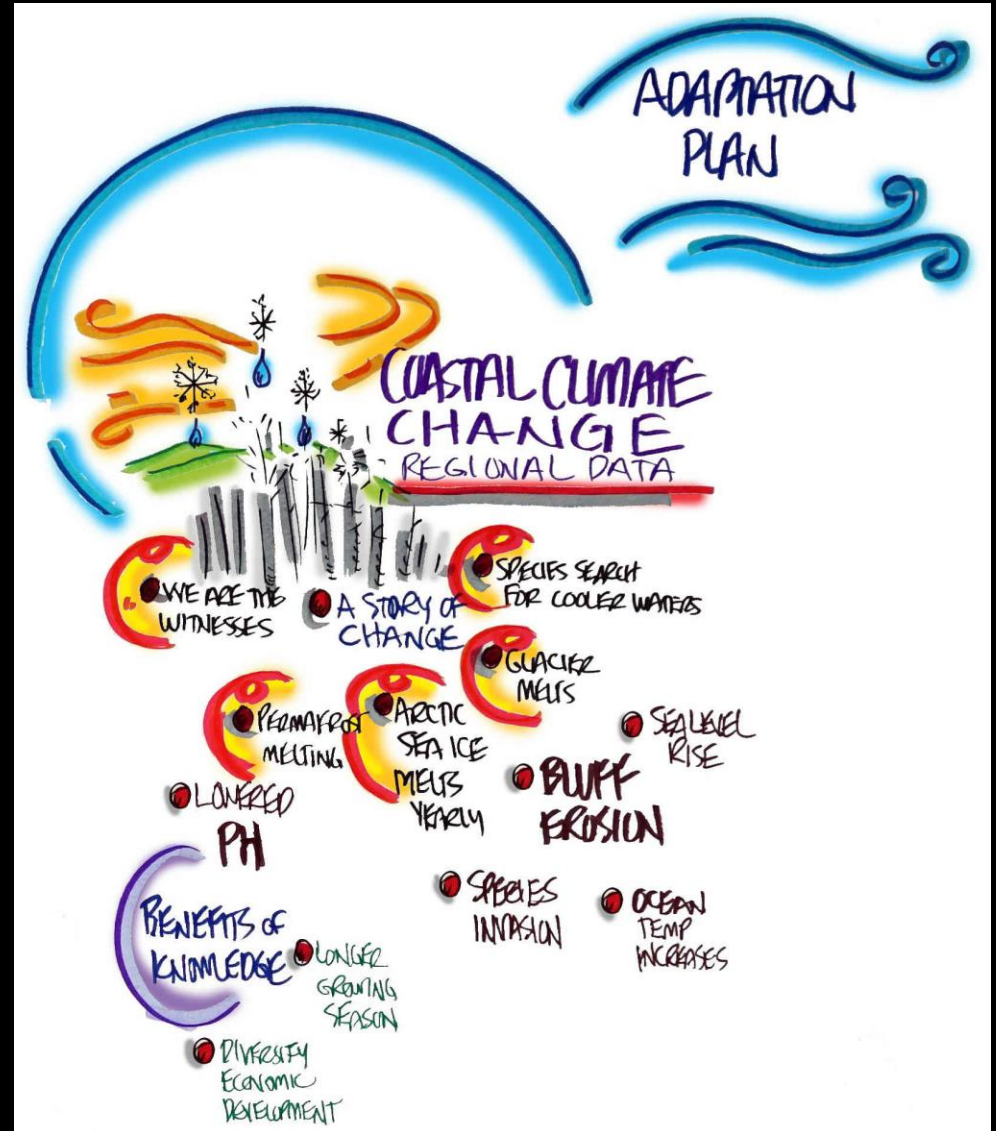 ADAPTATION
PLAN
COASTAL CLIMATE
CHANGE
REGIONAL DATA
WE ARE THE
WITNESSES
A STORY OF
CHANGE
SPECIES SEARCH
FOR COOLER WATERS
GLACIER
MELTS
PERMAFROST
MELTING
ARCTIC
SEA ICE
MELTS
YEARLY
SEA LEVEL
RISE
BLUFF
EROSION
LOWERED
PH
SPECIES
INVASION
OCEAN
TEMP
INCREASES
BENEFITS OF
KNOWLEDGE
LONGER
GROWING
SEASON
DIVERSIFY
ECONOMIC
DEVELOPMENT